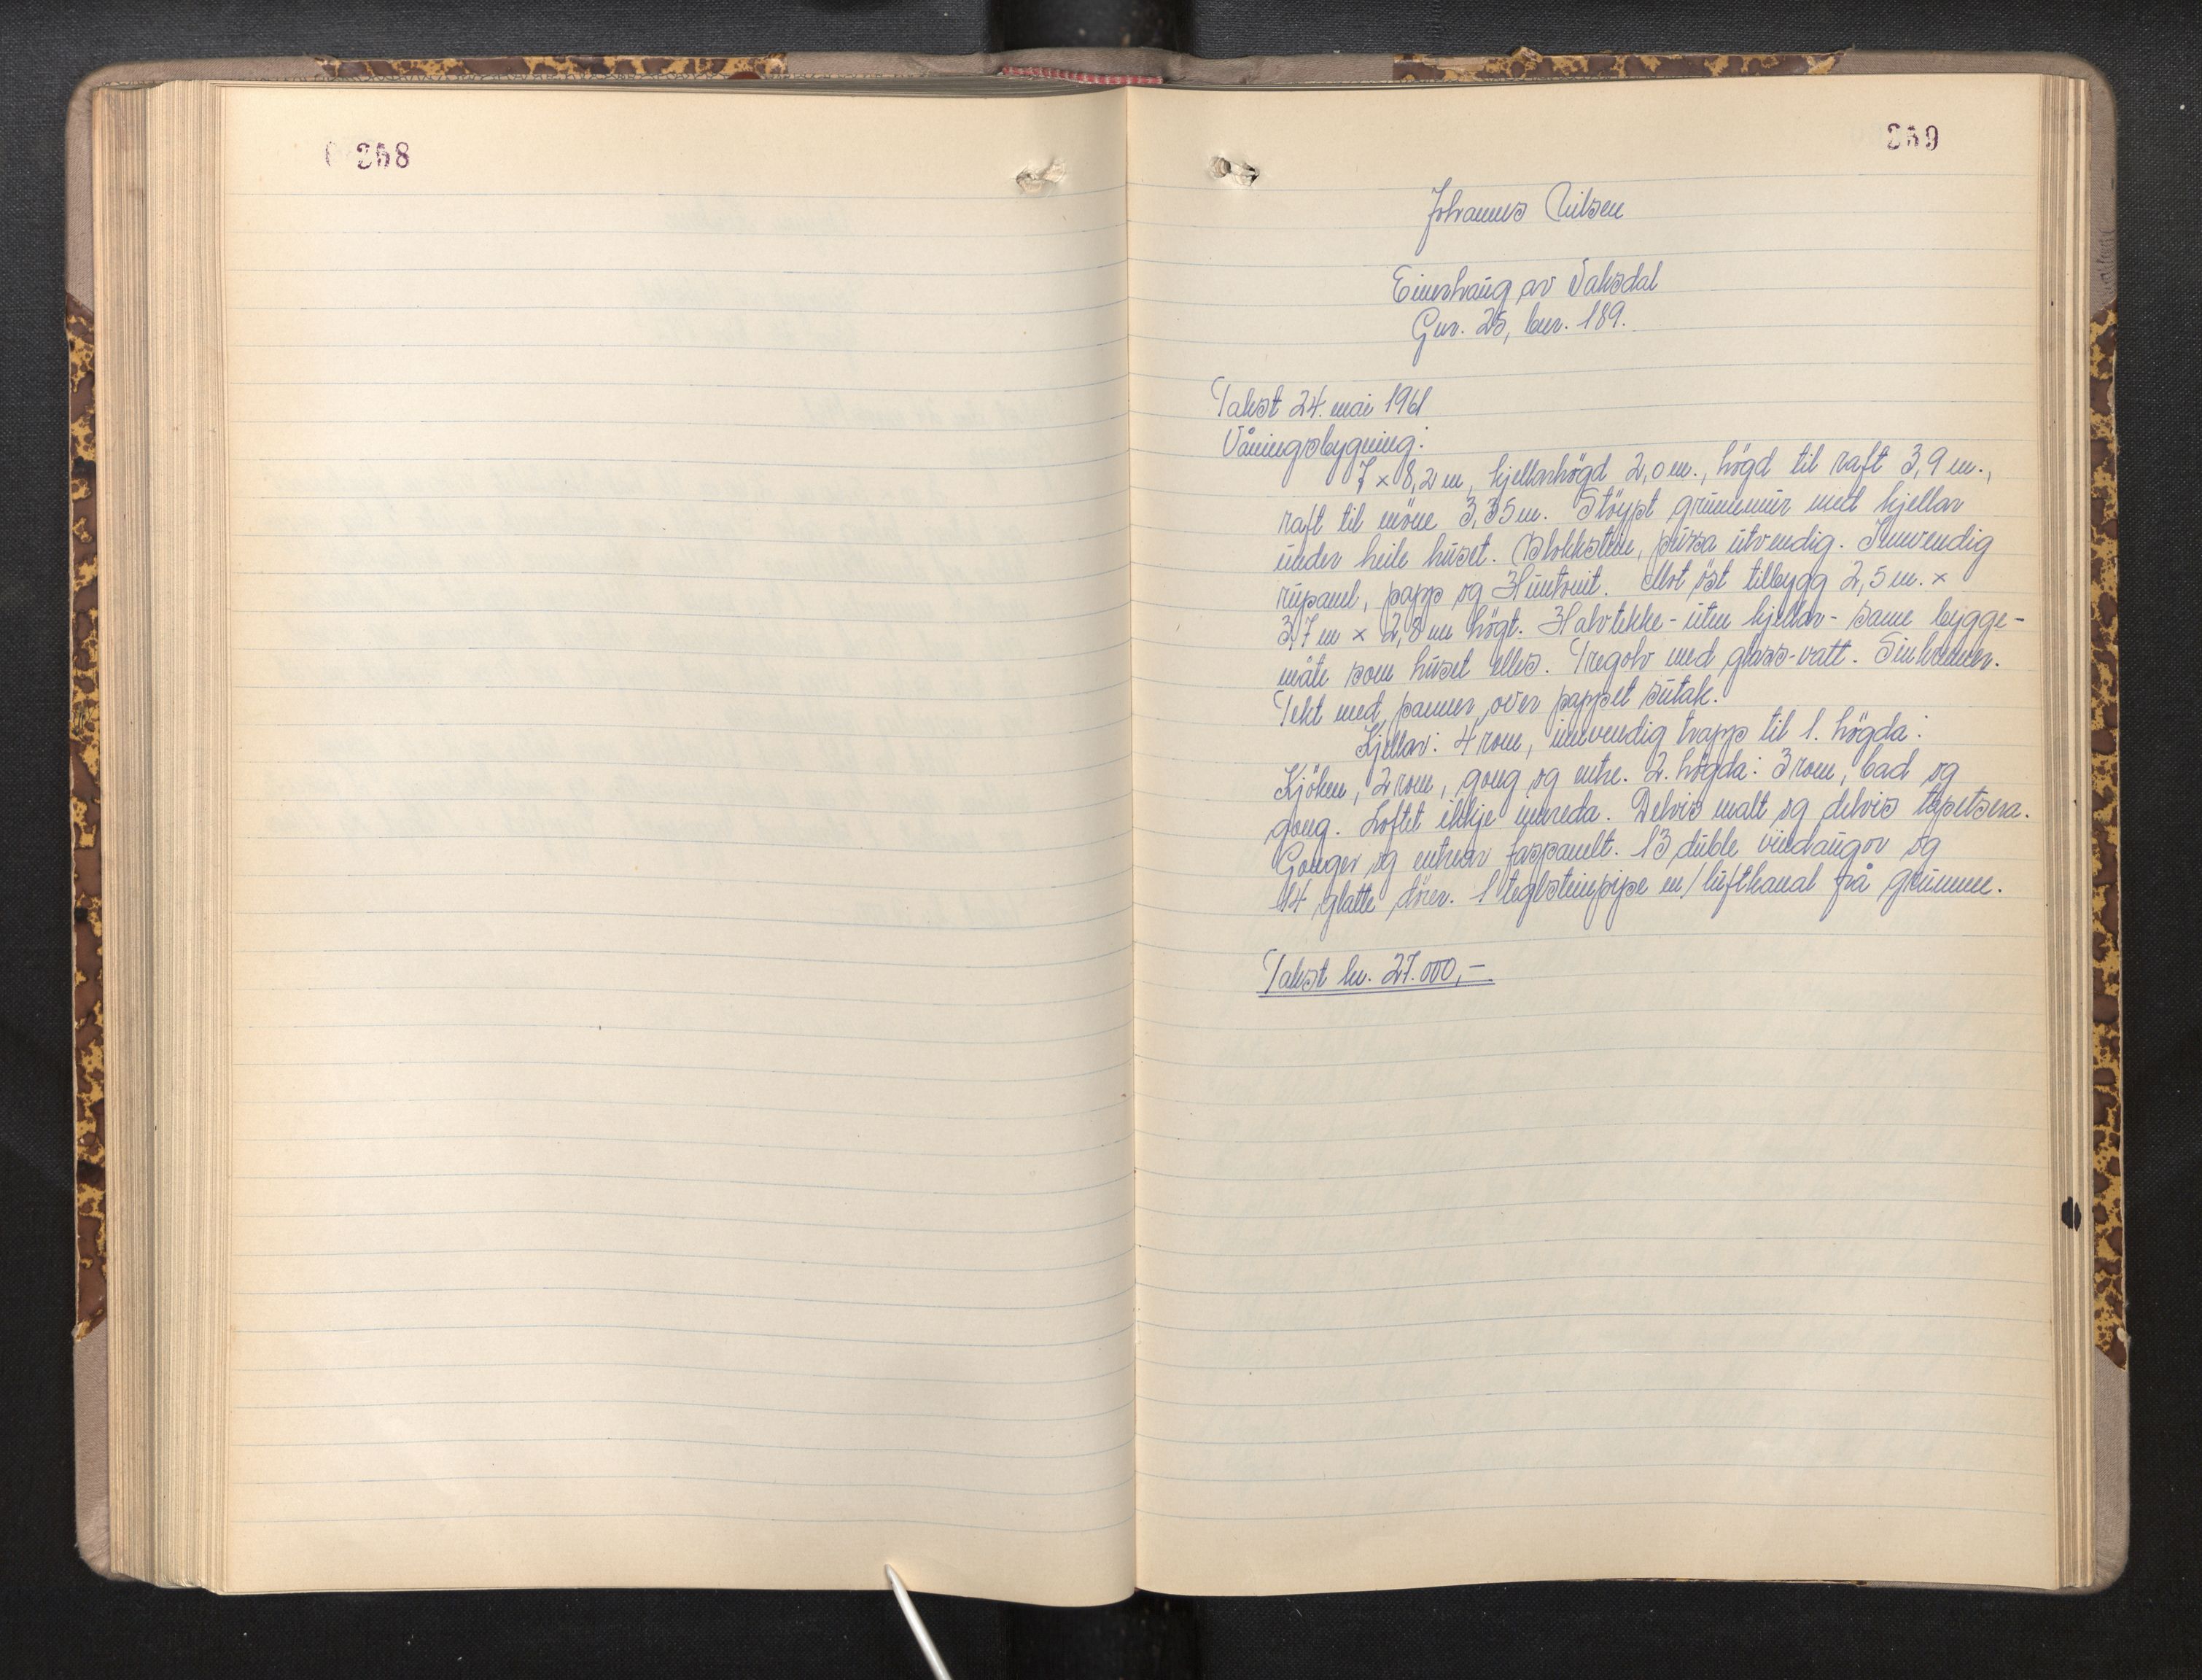 258
259
Johannes Nilsen
Einerhaug av Vaksdal
Gnr. 25, bnr. 189.
Takst 24. mai 1961
Våningsbygning:
7 x 8,2 m, kjellarhögd 2,0 m., högd til raft 3,9 m.,
raft til möne 3,35 m. Stöypt grunnmur med kjellar
under heile huset. Blokkstein, pussa utvendig. Innvendig
rupanel, papp og Huntonit. Mot öst tilbygg 2,5 m. x
3,7 m x 2,8 m högt. Halvtekke - uten kjellar - same bygge-
måte som huset elles. Tregolv med glass-vatt. Sinkrenner.
Tekt med panner over pappet sutak.
Kjellar: 4 rom, innvendig trapp til 1. högda:
Kjöken, 2 rom, gong og entre. 2. högda: 3 rom, bad og
gong. Loftet ikkje innreda. Delvis malt og delvis tapetsera.
Gonger og entrear faspanelt. 13 duble vindaugor og
14 glatte dörer. 1 teglsteinpipe m/luftkanal frå grunnen.
Takst kr. 27.000,-